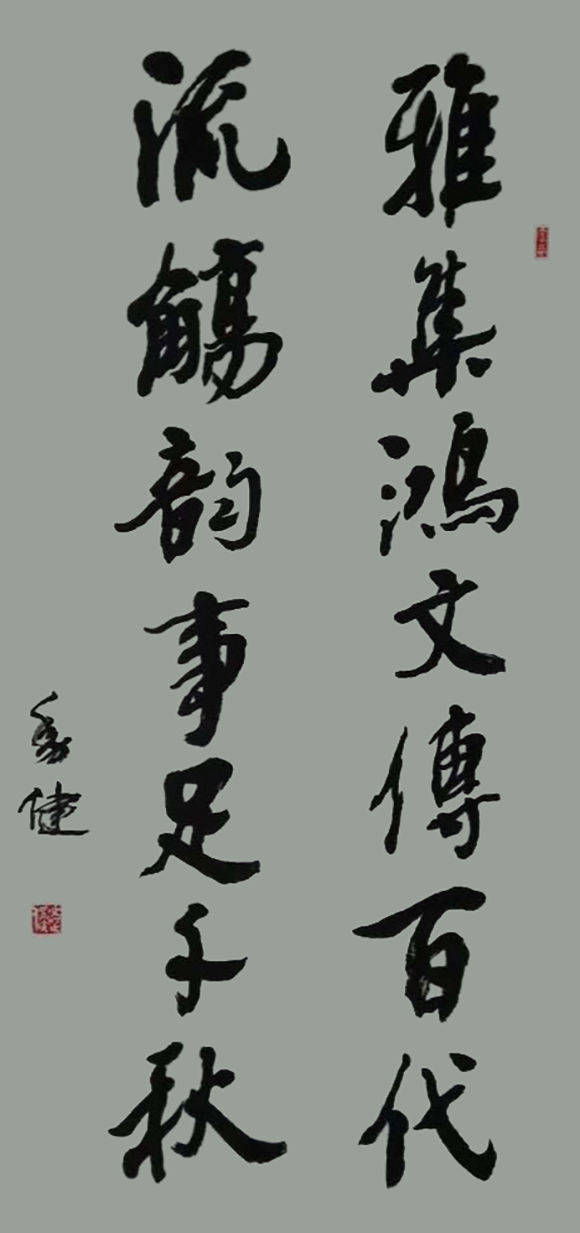 雅集鴻文傳百代
流觴韵事足千秋